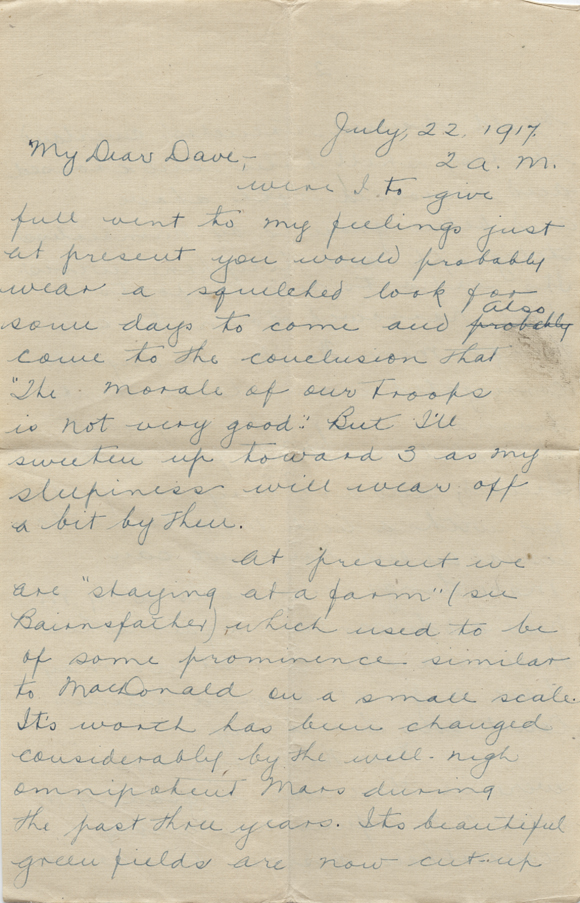 July, 22. 1917.
My Dear Dave,-
2 a. m.
were I to give
full vent to my feelings just
at present you would probably
wear a squelched look for
some days to come and probably also
come to the conclusion that
"The morale of our troops
is not very good." But I'll
sweeten up toward 3 as my
sleepiness will wear off
a bit by then.
At present we
are "staying at a farm" (see
Bairnsfather) which used to be
of some prominence similar
to MacDonald on a small scale.
It's worth has been changed
considerably, by the well-nigh
omnipotent Mars during
the past three years. Its beautiful
green fields are now cut-up